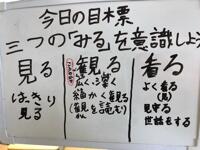 今日の目標
三つの「みる」を意識しよう
見る
はっきり
観る
広く深く
細かく観る
看る
よく看る
見守る
世話をする